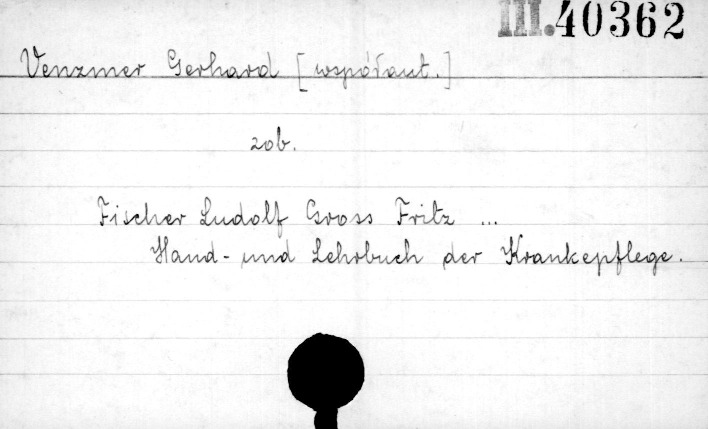 III.40362
Venzmer Gerhard [współaut.]
zob.
Fischer Ludolf Gross Fritz ...
Hand- und Lehrbuch der Krankepflege.